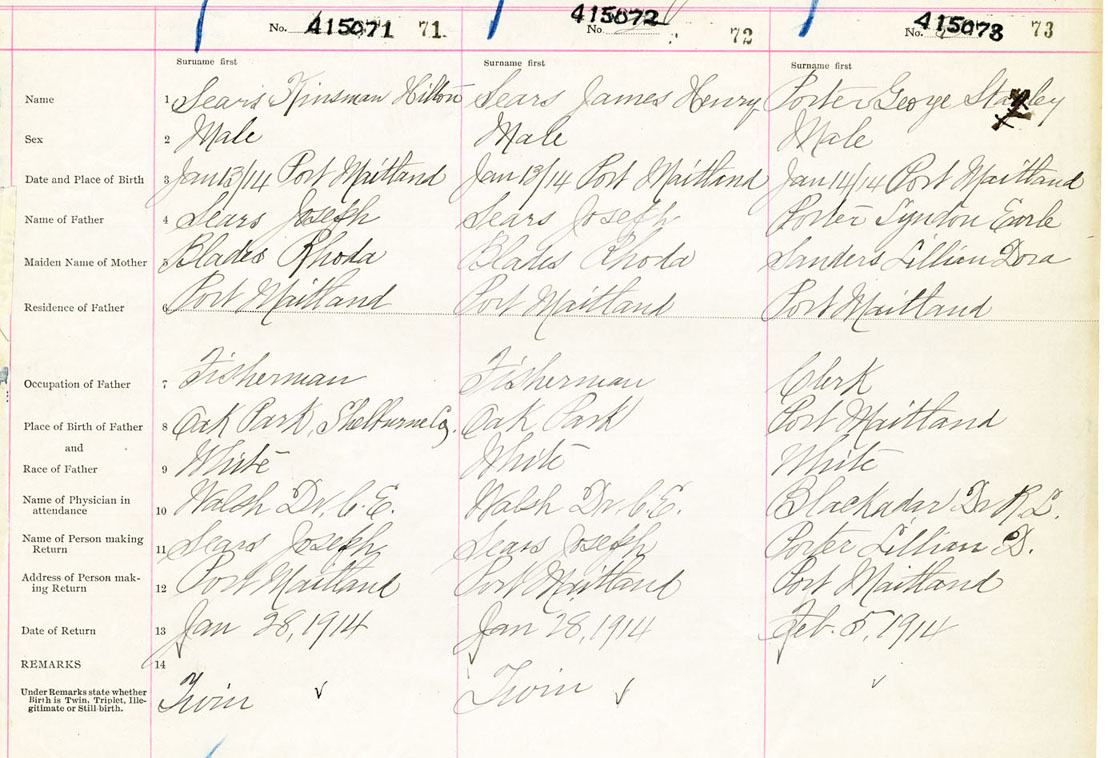 No. 415071 71 No. 415072 72 No. 415073 73
Surname first Surname first Surname first
Name 1 Sears Kinsman Hilton Sears James Henry Porter George Stanley
Sex 2 Male Male Male
Date and Place of Birth 3 Jan 13/14 Port Maitland Jan 13/14 Port Maitland Jan 14/14 Port Maitland
Name of Father 4 Sears Joseph Sears Joseph Porter Lyndon Earle
Maiden Name of Mother 5 Blades Rhoda Blades Rhoda Sanders Lillian Dora
Residence of Father 6 Port Maitland Port Maitland Port Maitland
Occupation of Father 7 Fisherman Fisherman Clerk
Place of Birth of Father 8 Oak Park, Shelburne Co. Oak Park Port Maitland
and
Race of Father 9 White White White
Name of Physician in
attendance 10 Walsh Dr. C. E. Walsh Dr. C. E. Blackadar Dr R. L.
Name of Person making
Return 11 Sears Joseph Sears Joseph Porter Lillian D.
Address of Person mak-
ing Return 12 Port Maitland Port Maitland Port Maitland
Date of Return 13 Jan 28, 1914 Jan 28, 1914 Feb. 5, 1914
REMARKS 14
Under Remarks state whether
Birth is Twin, Triplet, Ille-
gitimate or Still-birth. Twin Twin